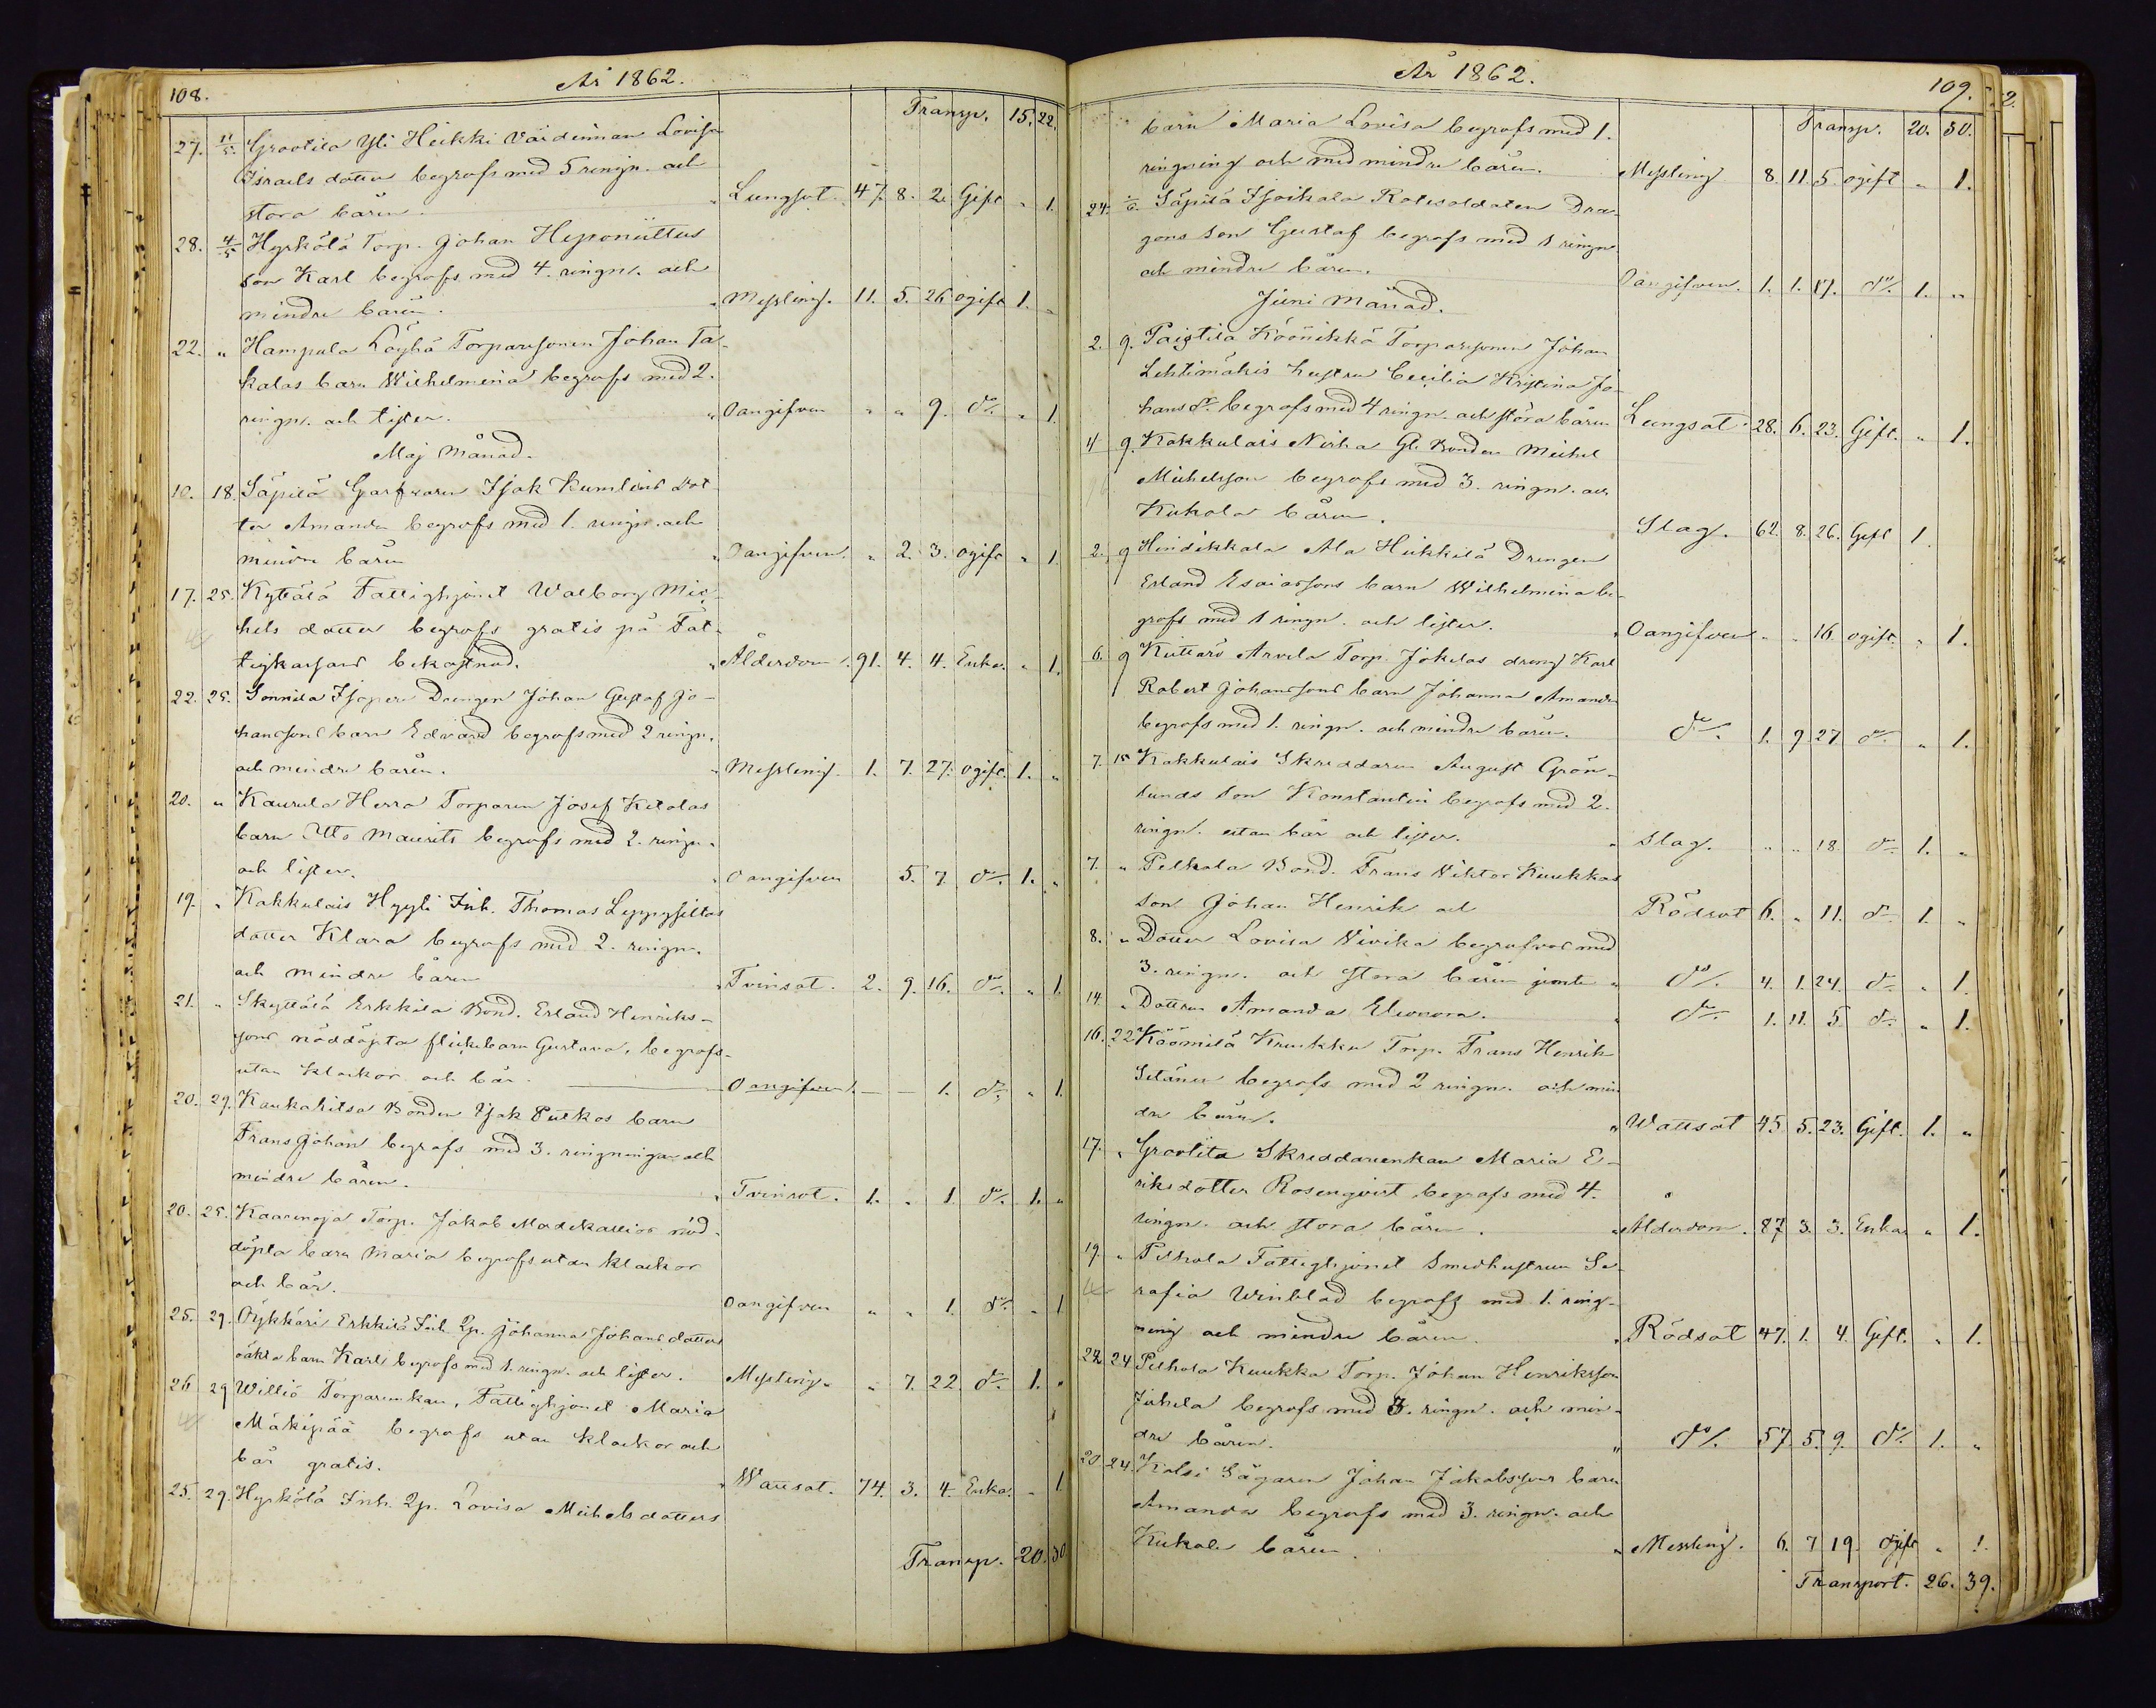 108.
År 1862.
Transp. 15. 22.
27. 11/5. Grootila Yli Heikki Värdinnan Lovisa
Israels dotter begrofs med 5 ringn. och
stora båren. Lungsot. 47. 8. 2. Gift " 1.
28. 4/5 Hyrkölä Torp. Johan Heponiittus
son Karl begrofs med 4. ringn. och
mindre båren. Messling. 11. 5. 26 ogift 1. "
22. " Hampula Löyhä Torparesonen Johan Ta-
kalas barn Wilhelmina begrofs med 2.
ringn. och lister. Oangifven " " 9. do. " 1.
Maj Månad.
10. 18. Säpilä Garfvaren Isak Kumlins dot
ter Amanda begrofs med 1. ringn. och
mindre båren Oangifven. " 2. 3. ogift " 1.
17. 25. Kyttälä Fattighjonet Walborg Mic-
hels dotter begrofs gratis på Fat-
tigkassans bekostnad. Ålderdom. 91. 4. 4. Enka. " 1.
22. 25. Sonnila Isoperi Drengen Johan Gustaf Jo-
hanssons barn Edvard begrofs med 2 ringn.
och mindre båren. Messling. 1. 7. 27. ogift. 1. "
20. " Kaurula Herra Torparen Josef Ketolas
barn Otto Maurits begrofs med 2. ringn.
och lister. Oangifven 5. 7. do. 1. "
19. " Kakkulais Hyyli Inh. Thomas
dotter Klara begrofs med 2. ringn.
och mindre båren Tvinsot. 2. 9. 16. do. " 1.
21. " Skyttälä Erkkilä Bond. Erland Henriks-
sons nöddöpta flickebarn Gustava, begrofs
utan klockor och bår. Oangifven. — — 1. do. " 1.
20. 29. Kaukaritsa Bonden Isak Putkos barn
Frans Johan begrofs med 3. ringningar och
mindre båren. Tvinsot. 1. " 1. do. 1. "
20. 25. Kaarenoja Torp. Jakob nöd-
döpta barn Maria begrofs utan klockor
och bår. Oangifven " " 1. do. " 1
25. 29. Öykkäri Erkkilä Inh. Qp. Johanna Johans dotters
oäkta barn Karl begrofs med 1. ringn. och lister. Messling " 7. 22. do. 1. "
26 29 Williö Torparenkan, Fattighjonet Maria
Mäkipää begrofs utan klockor och
bår gratis. Wattusot. 74. 3. 4. Enka. " 1
25. 29. Hyrkölä Inh. Qp. Lovisa Michelsdotters
Transp. 20. 30
År 1862.
109.
Transp. 20. 30.
barn Maria Lovisa begrofs med 1.
ringning och med mindre båren. Messling 8. 11. 5. ogift " 1.
24. 1/6. Säpilä Isoikala Rotesoldaten Dra-
gons son Gustaf begrofs med 1 ringn.
och mindre båren. Oangifven. 1. 1. 17. do. 1. "
Juni Månad.
2. 9. Paistila Köönikkä Torparesonen Johan
Lehtimäkis hustru Cecilia Kristina Jo-
hans dr. begrofs med 4 ringn. och stora båren Lungsot. 28. 6. 23. Gift. " 1.
4 9. Kakkulais Nirha Gl. Bonden Michel
Michelsson begrofs med 3. ringn. och
Kukola båren. Slag. 62. 8. 26. Gift 1.
2. 9 Hindikkala Ala Heikkilä Drengen
Erland Esaiassons barn Wilhelmina be-
grofs med 1 ringn. och lister. Oangifven " " 16. ogift. " 1.
6. 9 Kiettarö Arvela Torp. Jokelas dreng Karl
Robert Johanssons barn Johanna Amanda
begrofs med 1. ringn. och mindre båren. do. 1. 9 27 do. " 1.
7. 15 Kakkulais Skreddaren August Grön-
lunds son Konstantin begrofs med 2.
ringn. utan bår och lister. Slag. " " 18. do. 1. "
7. " Pelhola Bond. Frans Wiktor Kuukkas
son Johan Henrik och Rödsot 6. " 11. do. 1. "
8. " Dotter Lovisa Wivika begrofvos med
3. ringn. och stora båren jemte do. 4. 1. 24. do. " 1.
14. " Dottren Amanda Eleonora. do. 1. 11. 5. do. " 1.
16. 22 Köömilä Kruukku Torp. Frans Henrik
Setänen begrofs med 2 ringn. och min
dre båren. Wattsot 45 5. 23. Gift. 1. "
17. " Grootila Skreddarenkan Maria E-
riksdotter Rosenqvist begrofs med 4.
ringn. och stora båren. Ålderdom. 87 3. 3. Enka " 1.
19. " Pelhola Fattighjonet Smedhustrun Se-
rafia Winblad begrofs med 1. ring-
ning och mindre båren. Rödsot 47. 1. 4. Gift. " 1.
22 24 Pelhola Kuukka Torp. Johan Henriksson
Juhela begrofs med 3. ringn. och min-
dre båren. do. 57. 5. 9. do. 1. "
20 24. Kolsi Sågaren Johan Jakobssons barn
Amanda begrofs med 3. ringn. och
Kukola båren. Messling. 6. 7 19. ogift " 1.
Transport. 26. 39.
2.